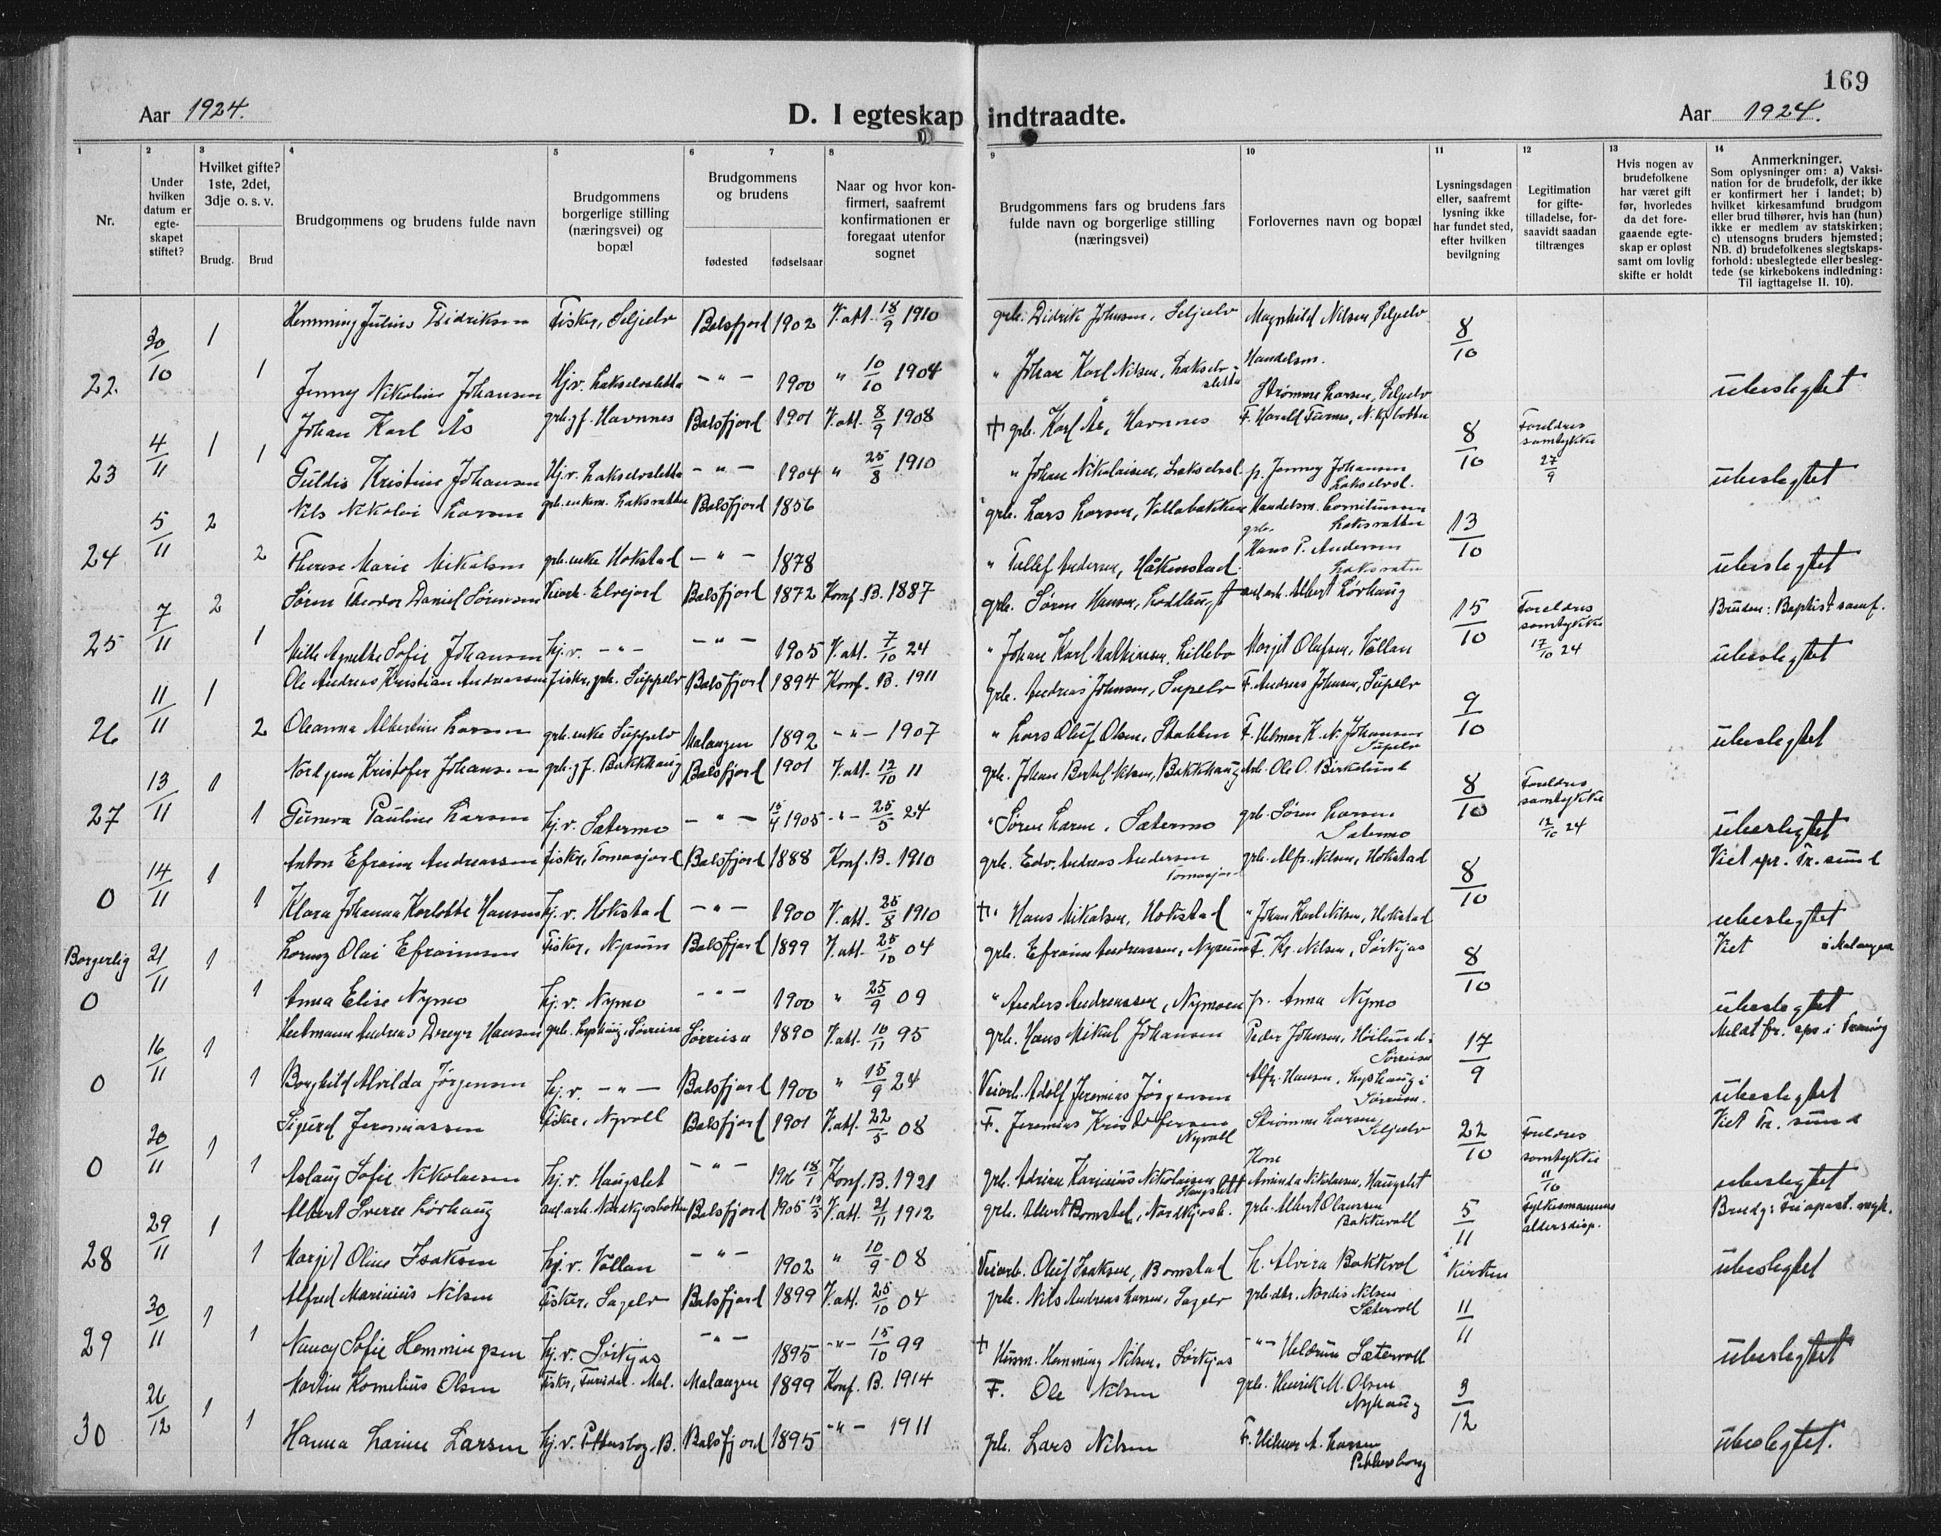 169
Aar 1924. D. I egteskap indtraadte. Aar 1924.
1 2 3 4 5 6 7 8 9 10 11 12 13 14
Nr.
Under hvilken datum er egteskapet stiftet?
Hvilket gifte? 1ste, 2det, 3dje o. s. v.
Brudg. Brud
Brudgommens og brudens fulde navn
Brudgommens borgerlige stilling (næringsvei) og bopæl
Brudgommens og brudens
fødested fødselsaar
Naar og hvor konfirmert, saafremt konfirmationen er foregaat utenfor sognet
Brudgommens fars og brudens fars fulde navn og borgerlige stilling (næringsvei)
Forlovernes navn og bopæl
Lysningsdagen eller, saafremt lysning ikke har fundet sted, efter hvilken bevilgning
Legitimation for giftetilladelse, forsaavidt saadan tiltrænges
Hvis nogen av brudefolkene har været gift før, hvorledes da det foregaaende egteskap er opløst samt om lovlig skifte er holdt
Anmerkninger.
Som oplysninger om: a) Vaksination for de brudefolk, der ikke er konfirmert her i landet; b) hvilket kirkesamfund brudgom eller brud tilhører, hvis han (hun) ikke er medlem av statskirken; c) utensogns bruders hjemsted; NB. d) brudefolkenes slegtskapsforhold: ubeslegtede eller beslegtede (se kirkebokens indledning: Til iagttagelse II. 10).
30/10 1 Hemming Julius Didriksen Fisker, Seljelv Balsfjord 1902 V. att. 18/9 1910 grb. Didrik Johnsen, Seljelv Magnhild Nilsen, Seljelv 8/10
22. 1 Jenny Nikoline Johansen Hj.v. Lakselvsletta — " — 1900 " 10/10 1904 " Johan Karl Nilsen, Lakselvsletta Handelsm. Strømme Larsen, Seljelv ubeslegtet
4/11 1 Johan Karl Ås grb. g.f. Havnnes Balsfjord 1901 V. att. 8/9 1908 + grb. Karl Ås, Havnnes F. Harald Furnes, N.kj.botten 8/10 Foreldres samtykke 27/9
23 1 Guldis Kristine Johansen Hj.v. Lakselvsletta — " — 1904 " 25/8 1910 " Johan Nikolaisen, Lakselvsl. p. Jenny Johansen Lakselvsl. ubeslegtet
5/11 2 Nils Nikolai Larsen grb. enkem. Laksvatten Balsfjord 1856 grb. Lars Larsen, Vollabakken Handelsm. Corneliussen Laksvatten 13/10
24 2 Therese Marie Mikalsen grb. enke Hokstad — " — 1878 " Tellef Andersen, Håkenstad grb. Hans P. Andersen Laksvatn ubeslegtet
7/11 2 Søren Theodor Daniel Sørensen Veiarb. Elvejord Balsfjord 1872 Konf. B. 1887 grb. Søren Hansen, anl.arb. Albert Lørhaug 15/10 Foreldres samtykke 17/10 24 Bruden: Baptist samf.
25 1 Mille Agnethe Sofie Johansen hj.v. — " — — " — 1905 V. att. 7/10 24 " Johan Karl Mathiassen, Lillebo Margit Olufsen, Vollan ubeslegtet
11/11 1 Ole Andreas Kristian Andreassen fisker, grb. Suppelv Balsfjord 1894 Konf. B. 1911 grb. Andreas Johnsen, Supelv F. Andreas Johnsen, Supelv 9/10
26 2 Oleanna Albertine Larsen grb. enke Suppelv Malangen 1892 — " — 1907 " Lars Oluf Olsen, Stabben F. Hilmar K. N. Johansen Supelv ubeslegtet
13/11 1 Nordgren Kristofer Johansen grb. g.f. Bakkhaug Balsfjord 1901 V. att. 12/10 11 grb. Johan Bertel Nilsen, Bakkhaug Arb. Ole O. Birkelund 8/10 Foreldres samtykke 12/10 24
27 1 Gunvra Pauline Larsen hj.v. Sætermo — " — 15/4 1905 — " — 25/5 24 " Søren Larsen, Sætermo grb. Søren Larsen Sætermo ubeslegtet
14/11 1 Anton Efraim Andreassen fisker, Tomasjord Balsfjord 1888 Konf. B. 1910 grb. Edv. Andreas Andersen Tomasjord grb. Alfr. Nilsen, Hokstad 8/10 Viet spr. Tr. sund
0 1 Klara Johanna Karlotte Hansen hj.v. Hokstad — " — 1900 V. att. 25/8 1910 + " Hans Mikalsen, Hokstad " Johan Karl Nilsen, Hokstad ubeslegtet
Borgerlig 21/11 1 Lorenz Olai Efraimsen Fisker, Nymo Balsfjord 1899 V. att. 25/10 04 grb. Efraim Andreassen, F. Kr. Nilsen, Sørkjos 8/10 Viet i Malangen
0 1 Anna Elise Nymo hj.v. Nymo — " — 1900 " 25/9 09 " Anders Andreassen, Nymoen p. Anna Nymo ubeslegtet
16/11 1 Hertmann Andreas Dreyer Hansen grb. Lyshaug, Sørreisa Sørreisa 1890 V. att. 10/11 95 grb. Hans Mikal Johansen Peder Johnsen, Høilund i Sørreisa 17/9
0 1 Borghild Alvilda Jørgensen hj.v. — " — Balsfjord 1900 " 15/9 24 Veiarb. Adolf Jeremias Jørgensen Alfr. Hansen, Lyshaug i Sørreisa. ubeslegtet
20/11 1 Sigurd Jeremiassen Fisker, Nyvoll Balsfjord 1901 V. att. 22/5 08 F. Jeremias Kristofersen Nyvoll Strømme Larsen, Seljelv 22/10 Foreldres samtykke 11/10 Viet Tr. sund
0 1 Aslaug Sofie Nikolaisen hj.v. Haugslet — " — 1906 18/1 Konf. B. 1921 grb. Adrian Karinius Nikolaisen Haugslett Kone Aminda Nikolaisen, Haugslet ubeslegtet
29/11 1 Albert Sverre Lørhaug anl.arb. Nordkjosbotten Balsfjord 1905 19/5 V. att. 21/11 1912 grb. Albert Bomstad, Nordkjosb. grb. Albert Olaussen Bakkevoll 5/11 i kirken Fylkesmannens aldersdisp. Brudg: Friapost. mgh.
28 1 Margit Oline Isaksen hj.v. Vollan — " — 1902 " 10/9 08 Veiarb. Oluf Isaksen, Bomstad h. Alvira Bakkvol ubeslegtet
30/11 1 Alfred Marinius Nilsen Fisker, Sagelv Balsfjord 1899 V. att. 25/10 04 grb. Nils Andreas Larsen, Sagelv grb. dtr. Nordis Nilsen Sætervoll 11/11
29 1 Nancy Sofie Hemmingsen hj.v. Sørkjos — " — 1895 — " — 15/10 99 + Husm. Hemming Nilsen, Sørkjos — " — Heldrun Sætervoll ubeslegtet
26/12 1 Martin Kornelius Olsen Fisker, Mal. Malangen 1899 Konf. B. 1914 F. Ole Nilsen grb. Henrik M. Olsen Nyhaug 9/12
30 1 Hanna Larine Larsen hj.v. Pettersborg. B. Balsfjord 1895 — " — 1911 grb. Lars Nilsen F. Hilmar A. Larsen Pettersborg ubeslegtet.